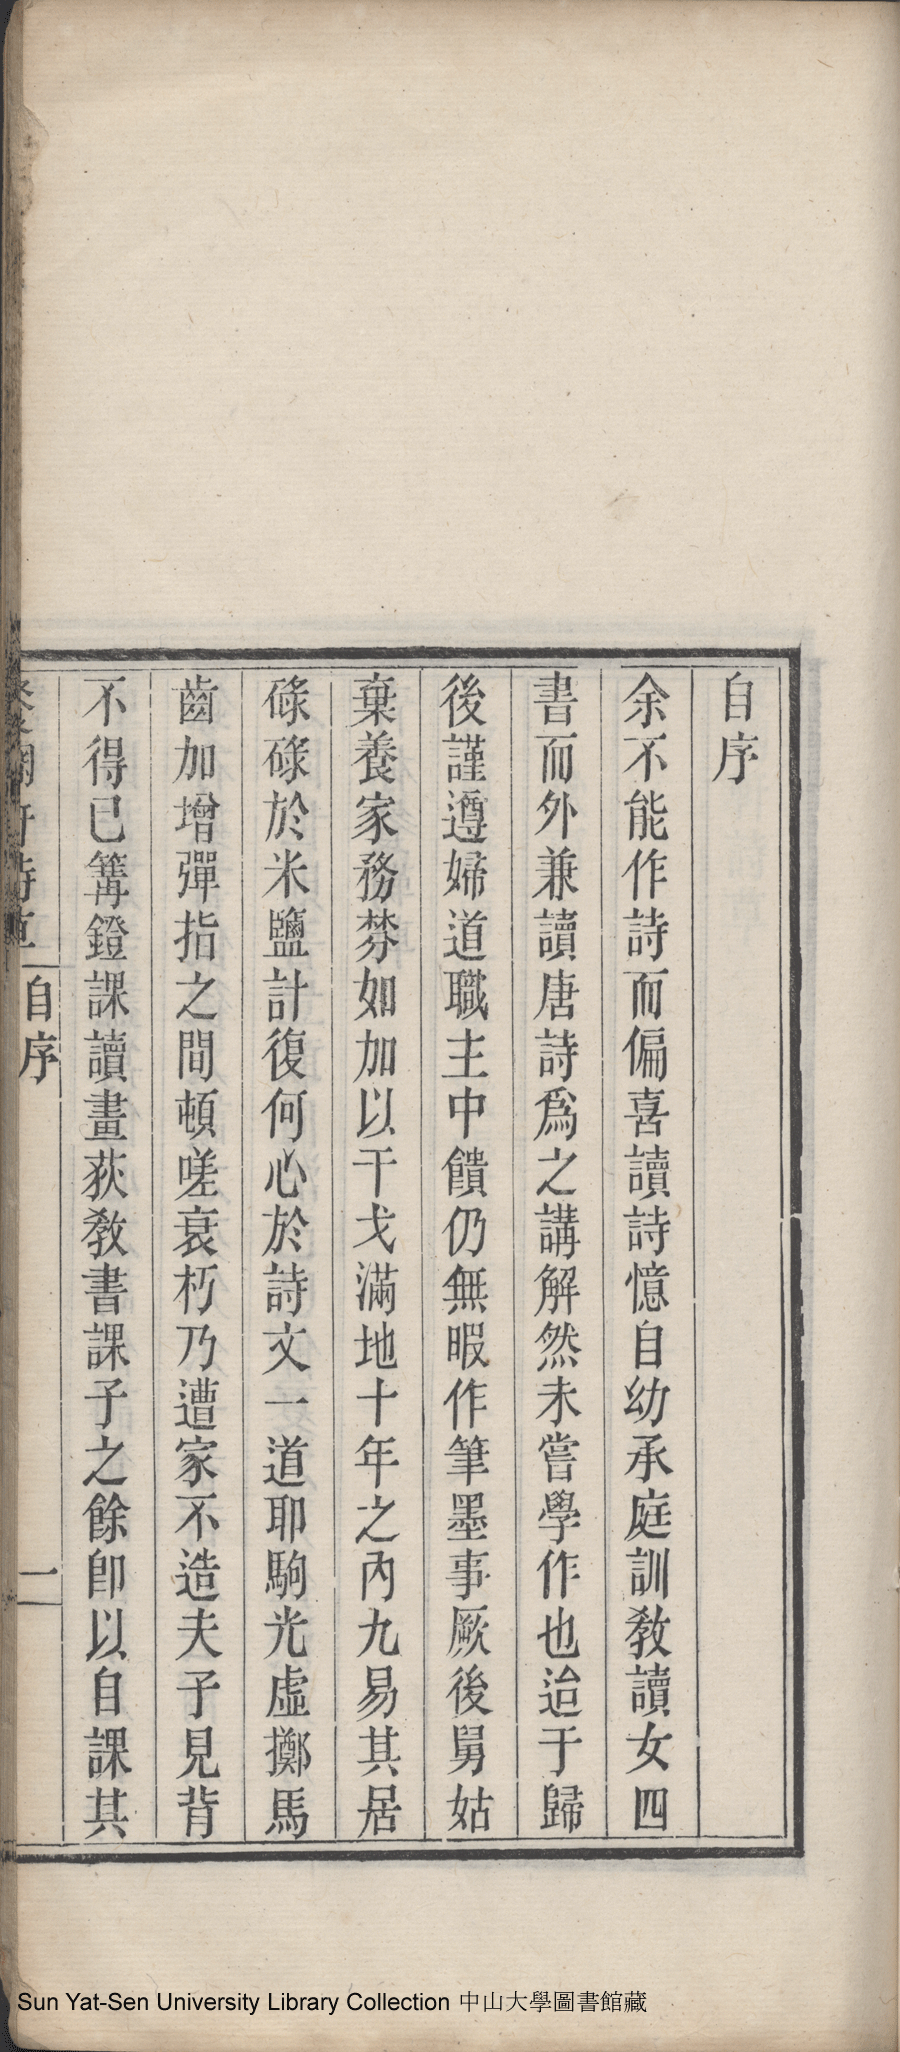 自序
余不能作詩而偏喜讀詩憶自幼承庭訓教讀女四
書而外兼讀唐詩爲之講解然未嘗學作也迨于歸
後謹遵婦道職主中饋仍無暇作筆墨事厥後舅姑
棄養家務棼如加以干戈滿地十年之內九易其居
碌碌於米鹽計復何心於詩文一道耶駒光虛擲馬
齒加增彈指之間頓嗟衰朽乃遭家不造夫子見背
不得已篝鐙課讀畫荻教書課子之餘卽以自課其
自序
一
Sun Yat-Sen University Library Collection 中山大學圖書館藏